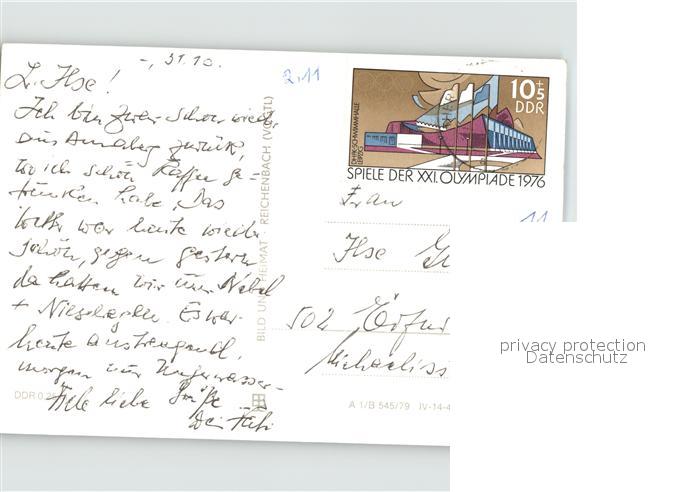 -, 31.10.
2,11
L. Ilse!
Ich bin zwar schon wieder
aus Annaberg zurück,
wo ich schön Kaffee ge-
trunken habe. Das
Wetter war heute wieder
schön, gegen gestern
da hatten wir nur Nebel
+ Nieselregen. Es war
heute anstrengend,
morgen nur
Viele liebe Grüße
Dein
DDR 0,25
BILD UND HEIMAT REICHENBACH (VOGTL)
10+5
DDR
DHFK-SCHWIMMHALLE
LEIPZIG
SPIELE DER XXI. OLYMPIADE 1976
Frau
11
Ilse
502 Erfur
Michaeliss
A 1/B 545/79 IV-14-4
privacy protection
Datenschutz